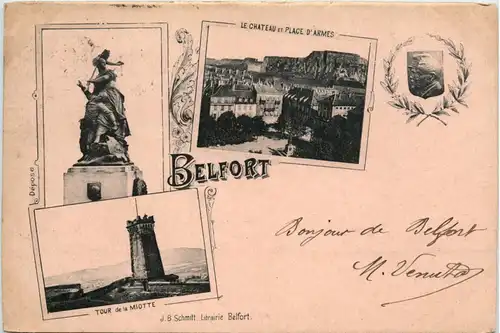 LE CHATEAU ET PLACE D'ARMES
Déposé
BELFORT
TOUR de la MIOTTE
J. B. Schmitt, Librairie Belfort.
Bonjour de Belfort
M. Venuto